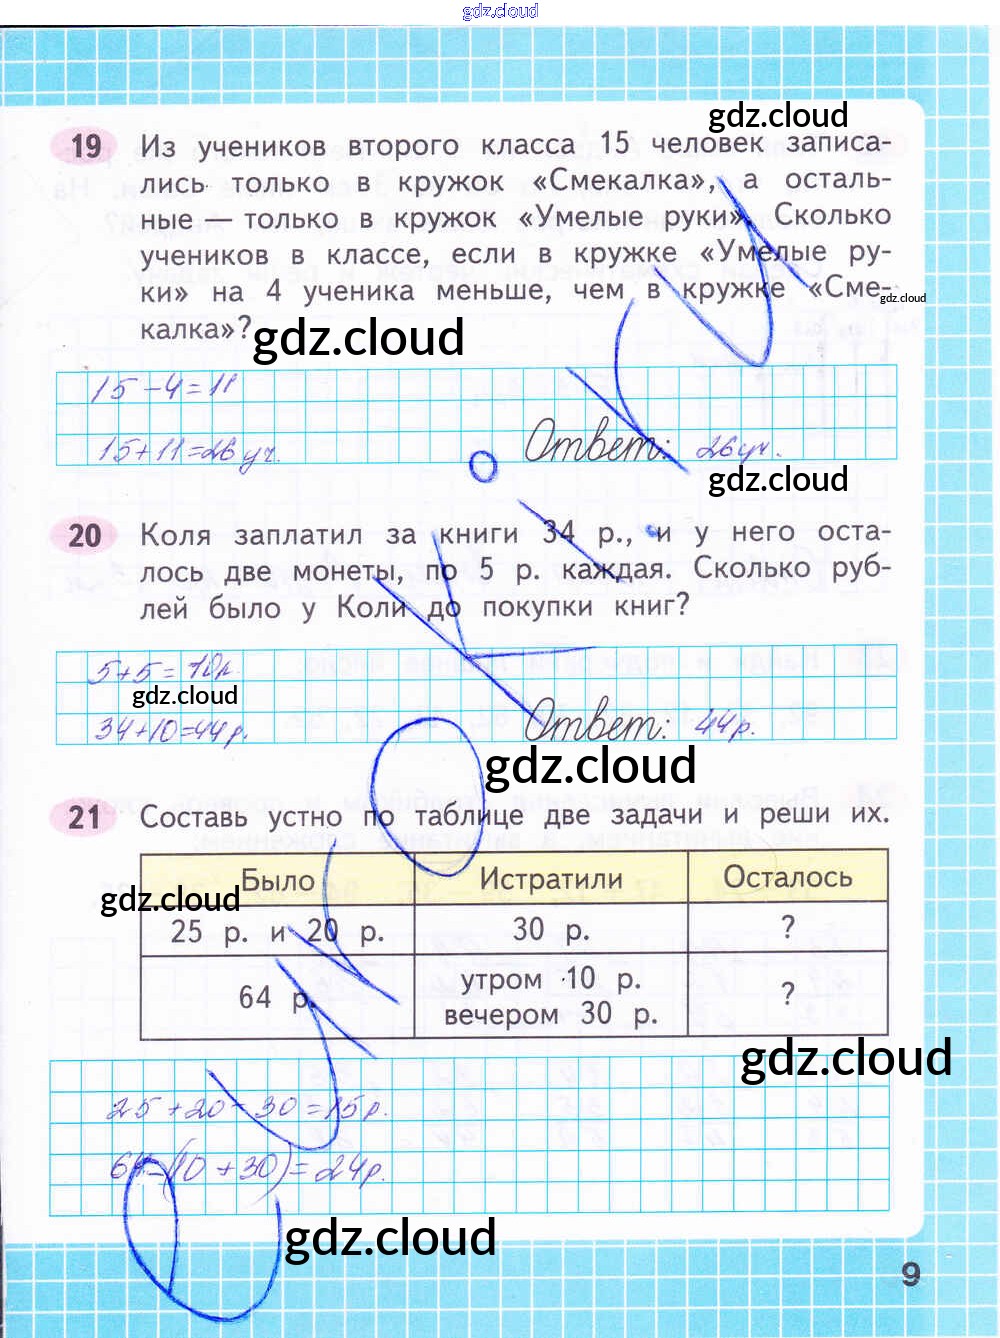 gdz.cloud
gdz.cloud
19 Из учеников второго класса 15 человек записа-
лись только в кружок «Смекалка», а осталь-
ные — только в кружок «Умелые руки». Сколько
учеников в классе, если в кружке «Умелые ру-
ки» на 4 ученика меньше, чем в кружке «Сме-
gdz.cloud
калка»?
gdz.cloud
15-4=11
15+11=26 уч. Ответ: 26 уч.
gdz.cloud
20 Коля заплатил за книги 34 р., и у него оста-
лось две монеты, по 5 р. каждая. Сколько руб-
лей было у Коли до покупки книг?
5+5=10р.
gdz.cloud
34+10=44р. Ответ: 44р.
gdz.cloud
21 Составь устно по таблице две задачи и реши их.
Было Истратили Осталось
gdz.cloud
25 р. и 20 р. 30 р. ?
64 р. утром 10 р. ?
вечером 30 р.
gdz.cloud
25+20-30=15р.
64-(10+30)=24р.
gdz.cloud
9